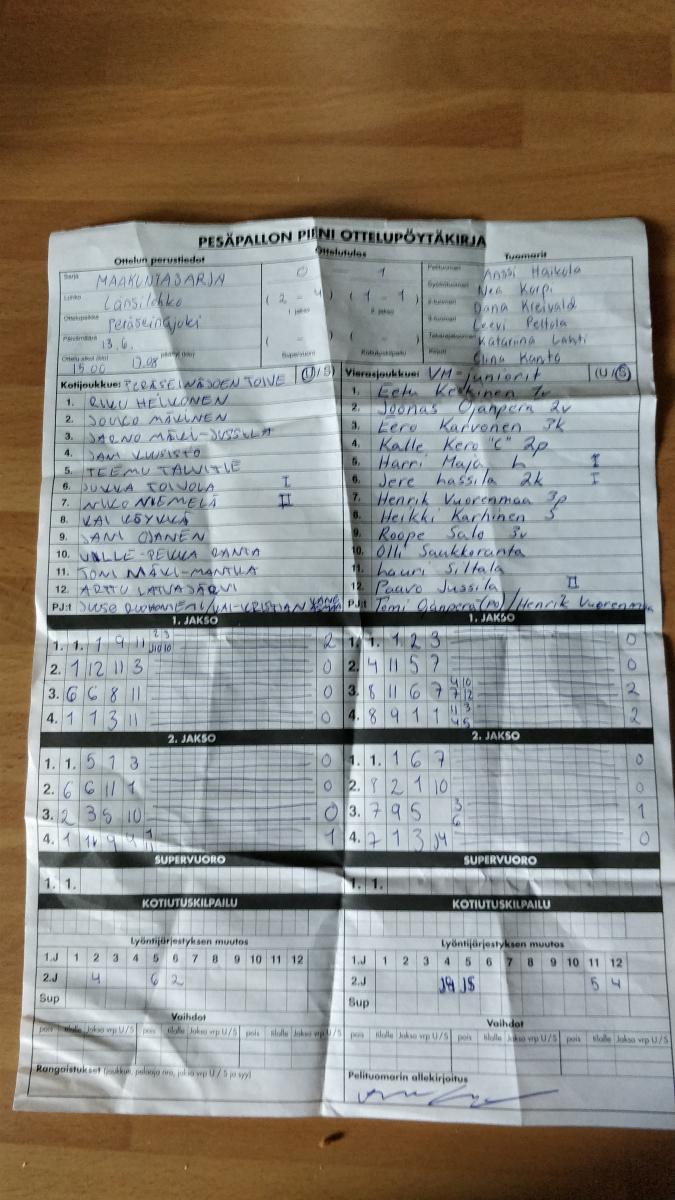 PESÄPALLON PIENI OTTELUPÖYTÄKIRJA
Ottelun perustiedot Ottelutulos Tuomarit
Sarja MAAKUNTASARJA 0 1 Pelituomari Anssi Haikola
Lohko Länsilohko (2 - 4) (1 - 1) Syöttötuomari Nea Korpi
Ottelupaikka Peräseinäjoki 1. jakso 2. jakso 2-tuomari Dana Kreivald
Päivämäärä 13.6. ( - ) ( - ) 3-tuomari Leevi Peltola
Takarajatuomari Katariina Lahti
Ottelu alkoi (klo) 15.00 päättyi (klo) 17.08 Supervuoro Kotiutuskilpailu Kirjuri Elina Kanto
Kotijoukkue: PERÄSEINÄJOEN TOIVE (U/S) Vierasjoukkue: VM-juniorit (U/S)
1. RIKU HEIKONEN 1. Eetu Keskinen 1v
2. JOUKO MÄKINEN 2. Joonas Ojanperä 2v
3. JARNO MÄKI-JUSSILA 3. Eero Karvonen 3k
4. JANI KUUSISTO 4. Kalle Kero "C" 2p
5. TEEMU TALVITIE 5. Harri Maja L I
6. JUKKA TOIVOLA I 6. Jere Lassila 2k I
7. NIKO NIEMELÄ II 7. Henrik Vuorenmaa 3p
8. KAI KÖYKKÄ 8. Heikki Karhinen S
9. JANI OJANEN 9. Roope Salo 3v
10. VILLE-PEKKA RANTA 10. Olli Saukkoranta
11. TONI MÄKI-MANTILA 11. Lauri Siltala
12. ARTTU LATVAJÄRVI 12. Paavo Jussila II
PJ:t JUSSE RUOHONIEMI/KAI-KRISTIAN PJ:t Tomi Ojanperä(PJ)/Henrik Vuorenmaa
1. JAKSO 1. JAKSO
1. 1. 1 9 11 2 3 10 10 2 1. 1. 1 2 3 0
2. 1 12 11 3 0 2. 4 11 5 7 0
3. 6 6 8 11 0 3. 8 11 6 7 4 10 7 12 2
4. 1 1 3 11 0 4. 8 9 1 1 11 3 4 5 2
2. JAKSO 2. JAKSO
1. 1. 5 1 3 0 1. 1. 1 6 7 0
2. 6 6 11 1 0 2. 8 2 1 10 0
3. 2 3 5 10 0 3. 7 9 5 3 6 1
4. 1 11 9 9 1 11 1 4. 7 1 3 J4 0
SUPERVUORO SUPERVUORO
1. 1. 1. 1.
KOTIUTUSKILPAILU KOTIUTUSKILPAILU
Lyöntijärjestyksen muutos Lyöntijärjestyksen muutos
1.J 1 2 3 4 5 6 7 8 9 10 11 12 1.J 1 2 3 4 5 6 7 8 9 10 11 12
2.J 4 6 2 2.J J4 J5 5 4
Sup Sup
Vaihdot Vaihdot
pois tilalle Jakso vrp U/S pois tilalle Jakso vrp U/S pois tilalle Jakso vrp U/S pois tilalle Jakso vrp U/S pois tilalle Jakso vrp U/S pois tilalle Jakso vrp U/S
Rangaistukset (joukkue, pelaaja nro, jakso vrp U / S ja syy) Pelituomarin allekirjoitus